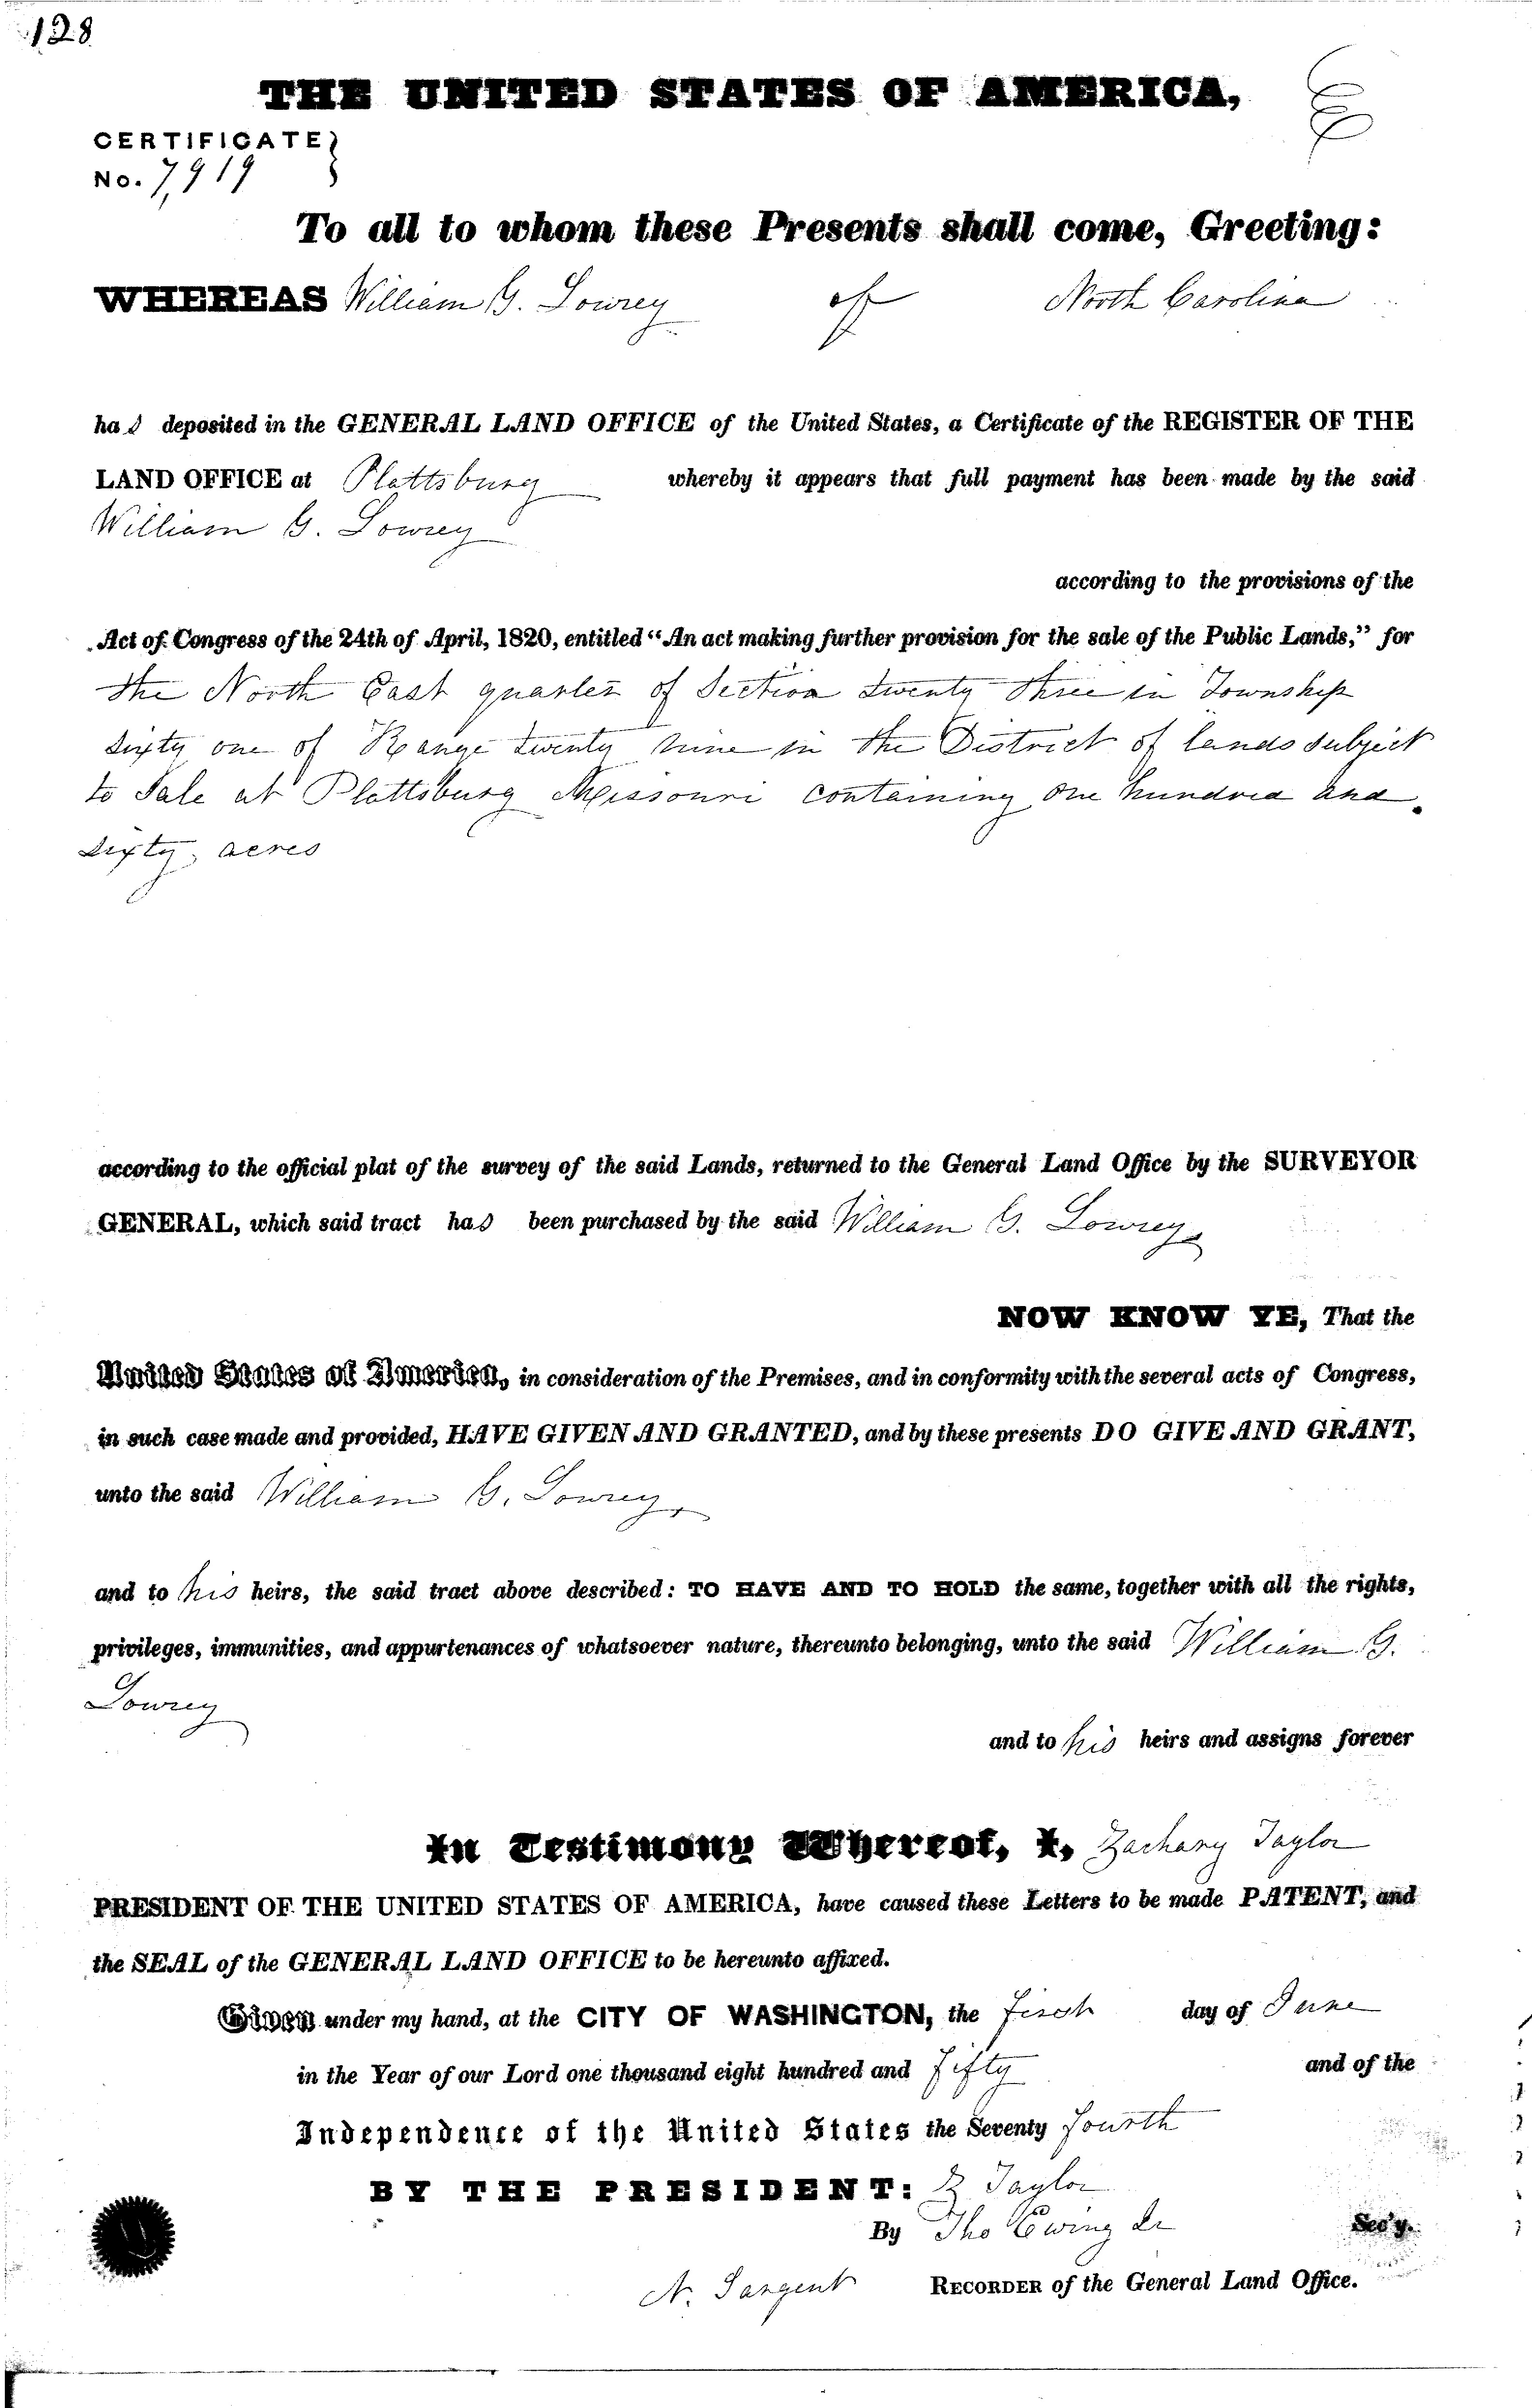 128
THE UNITED STATES OF AMERICA,
CERTIFICATE
No. 7,919
To all to whom these Presents shall come, Greeting:
WHEREAS William G. Lowrey of North Carolina
has deposited in the GENERAL LAND OFFICE of the United States, a Certificate of the REGISTER OF THE
LAND OFFICE at Plattsburg whereby it appears that full payment has been made by the said
William G. Lowrey
according to the provisions of the
Act of Congress of the 24th of April, 1820, entitled “An act making further provision for the sale of the Public Lands,” for
the North East quarter of Section twenty three in Township
sixty one of Range twenty nine in the District of lands subject
to Sale at Plattsburg Missouri containing one hundred and
sixty acres
according to the official plat of the survey of the said Lands, returned to the General Land Office by the SURVEYOR
GENERAL, which said tract has been purchased by the said William G. Lowrey
NOW KNOW YE, That the
United States of America, in consideration of the Premises, and in conformity with the several acts of Congress,
in such case made and provided, HAVE GIVEN AND GRANTED, and by these presents DO GIVE AND GRANT,
unto the said William G. Lowrey,
and to his heirs, the said tract above described: TO HAVE AND TO HOLD the same, together with all the rights,
privileges, immunities, and appurtenances of whatsoever nature, thereunto belonging, unto the said William G.
Lowrey
and to his heirs and assigns forever
In Testimony Whereof, I, Zachary Taylor
PRESIDENT OF THE UNITED STATES OF AMERICA, have caused these Letters to be made PATENT, and
the SEAL of the GENERAL LAND OFFICE to be hereunto affixed.
Given under my hand, at the CITY OF WASHINGTON, the first day of June
in the Year of our Lord one thousand eight hundred and fifty and of the
Independence of the United States the Seventy fourth
BY THE PRESIDENT: Z Taylor
By Tho Ewing Jr Sec'y.
N. Sargent RECORDER of the General Land Office.